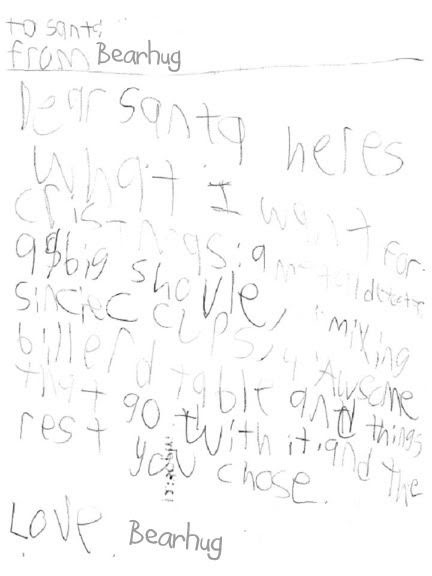 to santa
from Bearhug
Dear santa heres
What I want for
crismas: a metal detecter
a big shovle, 1 mixing
sinciec cups, a Awsome
billerd table and things
that go with it. and the
rest you chose.
Love Bearhug